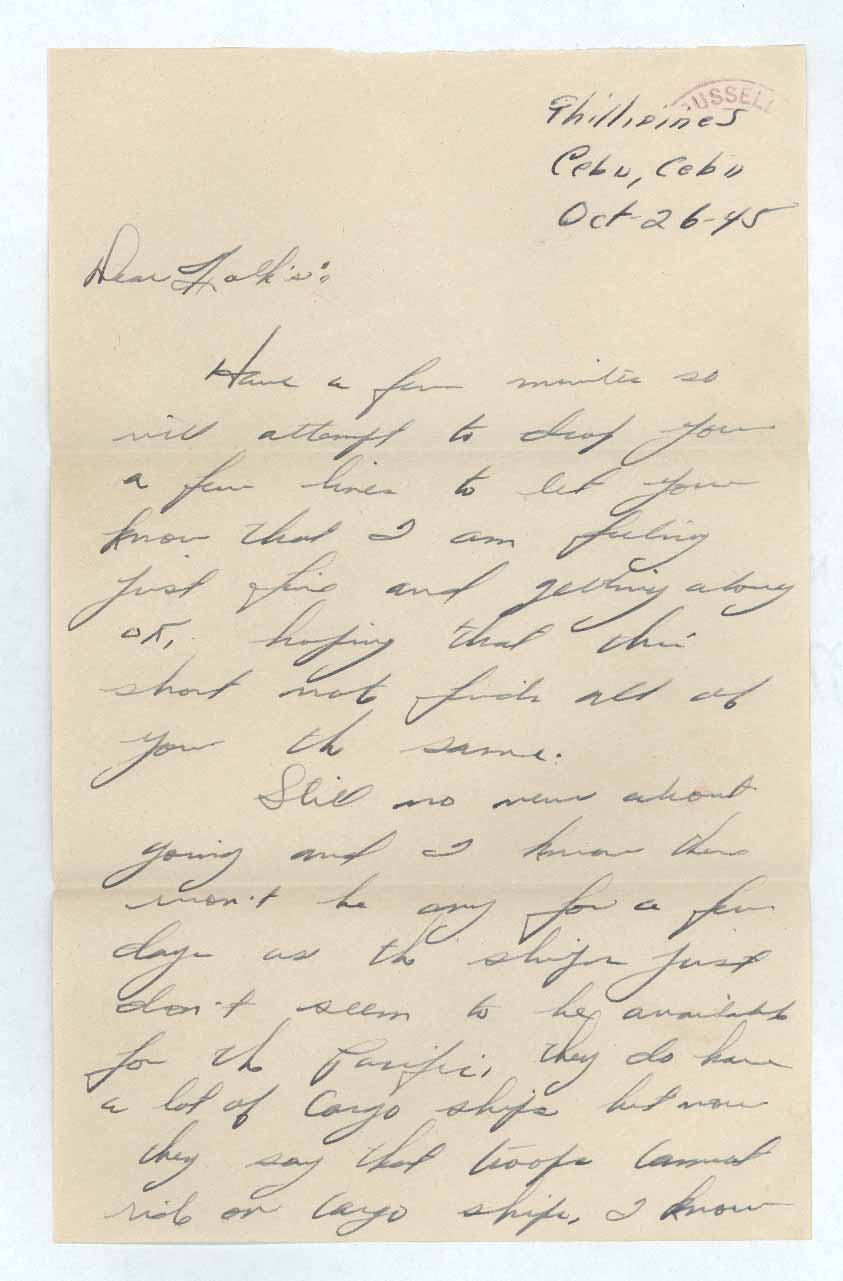 RUSSELL
Phillipines
Cebu, Cebu
Oct-26-45
Dear Folk's:
Have a few minutes so
will attempt to drop you
a few lines to let you
know that I am feeling
just fine and getting along
OK, hoping that this
short note finds all of
you the same.
Still no news about
going and I know there
won't be any for a few
days as the ships just
don't seem to be available
for the Pacific, they do have
a lot of cargo ships but now
they say that troops cannot
ride on cargo ships, I know